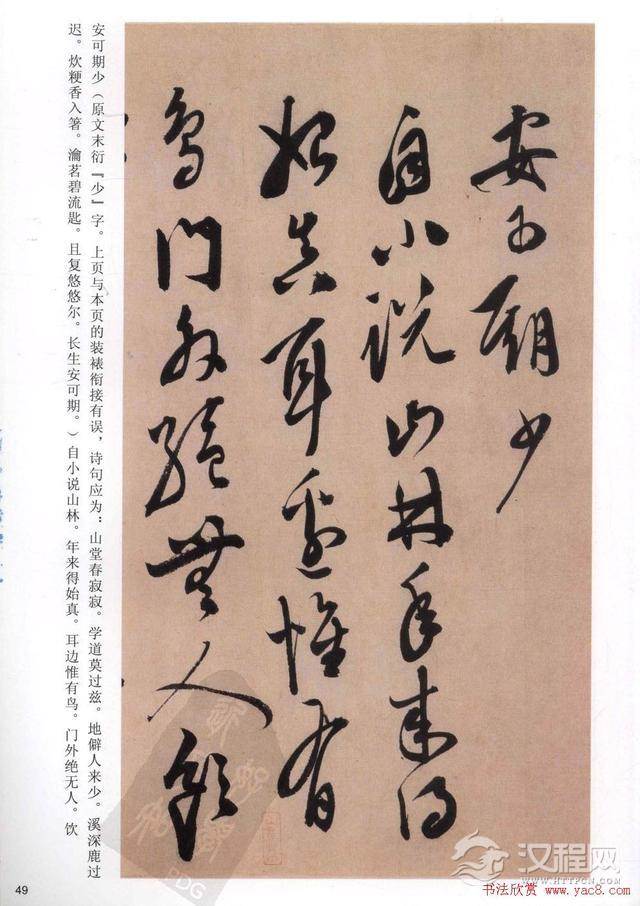 安可期少
自小说山林年来得
始真耳边惟有
鸟门外绝无人饮
安可期少（原文末衍『少』字。上页与本页的装裱衔接有误，诗句应为：山堂春寂寂。学道莫过兹。地僻人来少。溪深鹿过
迟。炊粳香入箸。瀹茗碧流匙。且复悠悠尔。长生安可期。）自小说山林。年来得始真。耳边惟有鸟。门外绝无人。饮
49
汉程网
书法欣赏 www.yac8.com
PDG